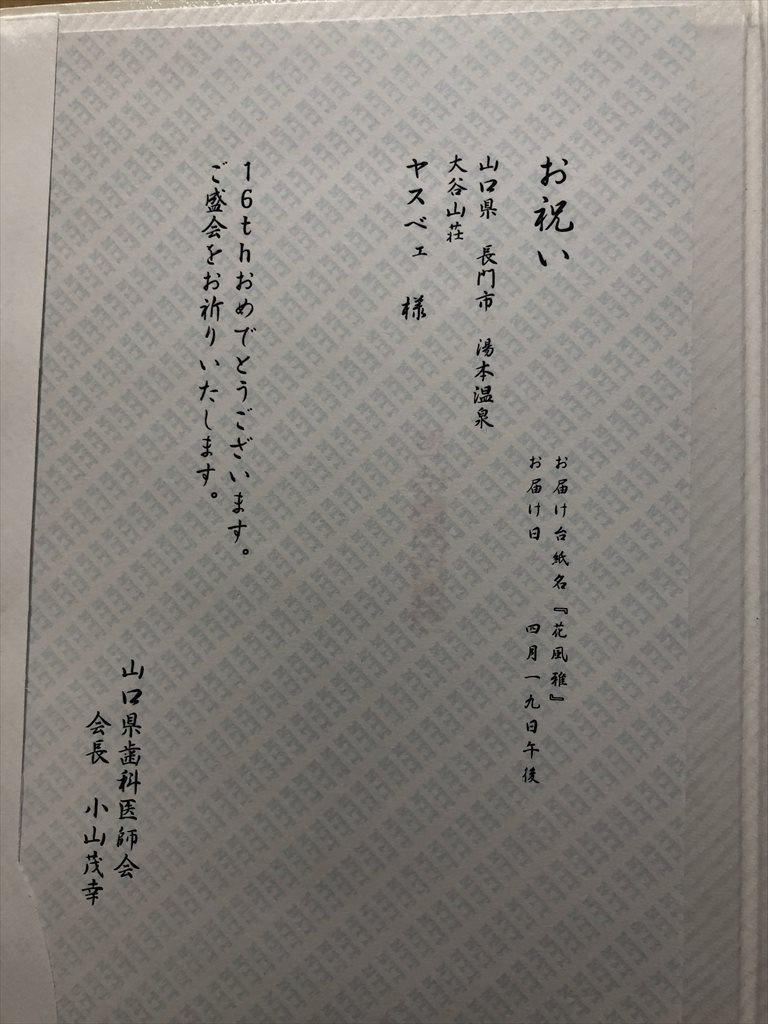 お祝い
お届け台紙名『花風雅』
お届け日 四月一九日午後
山口県 長門市 湯本温泉
大谷山荘
ヤスベェ 様
16thおめでとうございます。
ご盛会をお祈りいたします。
山口県歯科医師会
会長 小山茂幸